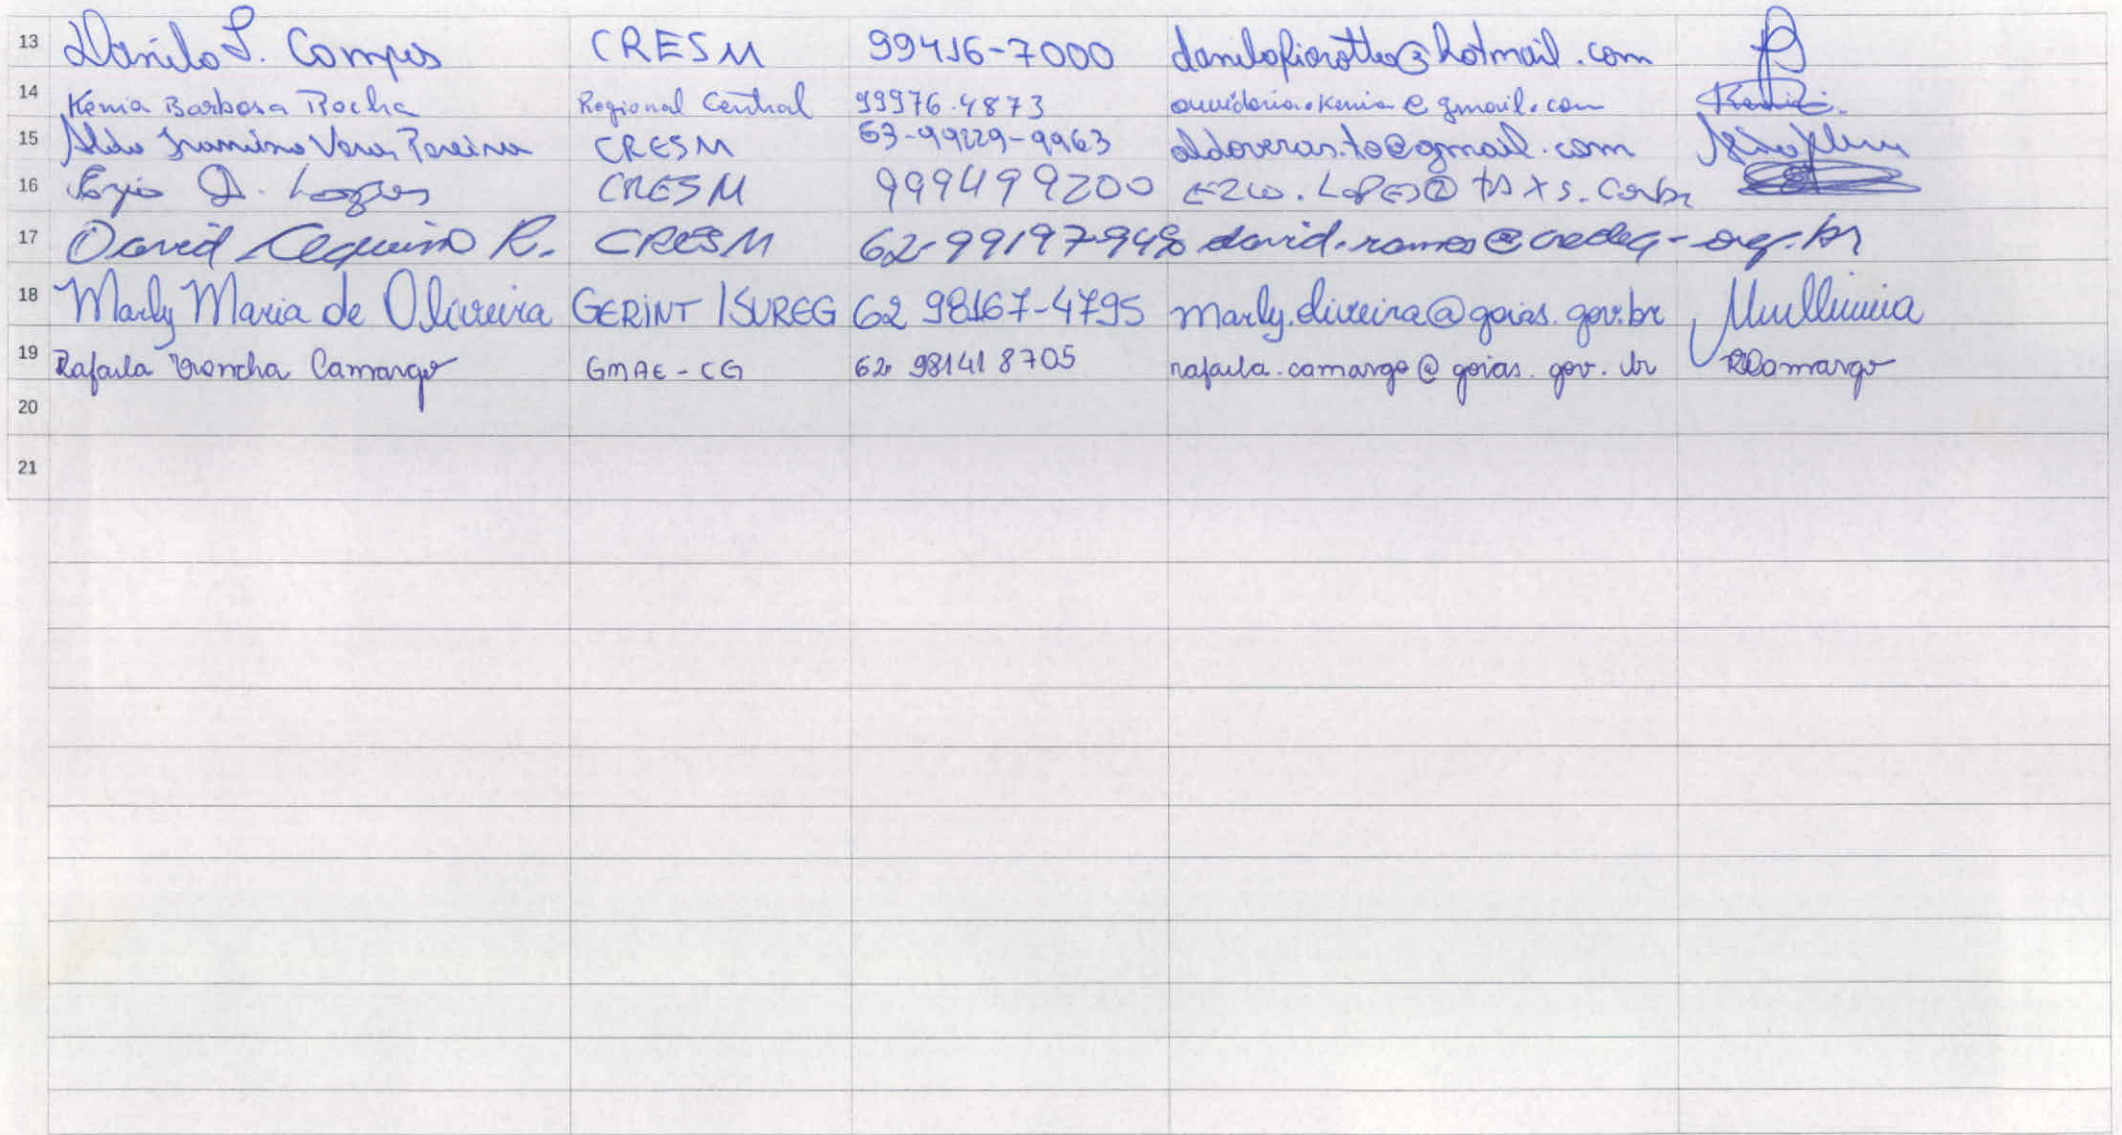 13 Danilo F. Campos CRESM 99416-7000 danilofiorotto@hotmail.com
14 Kenia Barbosa Rocha Regional Central 99976.4873 ouvidoria.kenia@gmail.com
15 Aldo Veras Pereira CRESM 63-99229-9963 aldoveras.to@gmail.com
16 Ezio D. Lopes CRESM 999499200
17 David R. CRESM 62-99197 david.ramos@credeq-org.br
18 Marly Maria de Oliveira GERINT/SUREG 62 98167-4795 marly.oliveira@goias.gov.br
19 Rafaela Camargo GMAE-CG 62 981418705 rafaela.camargo@goias.gov.br RCamargo
20
21